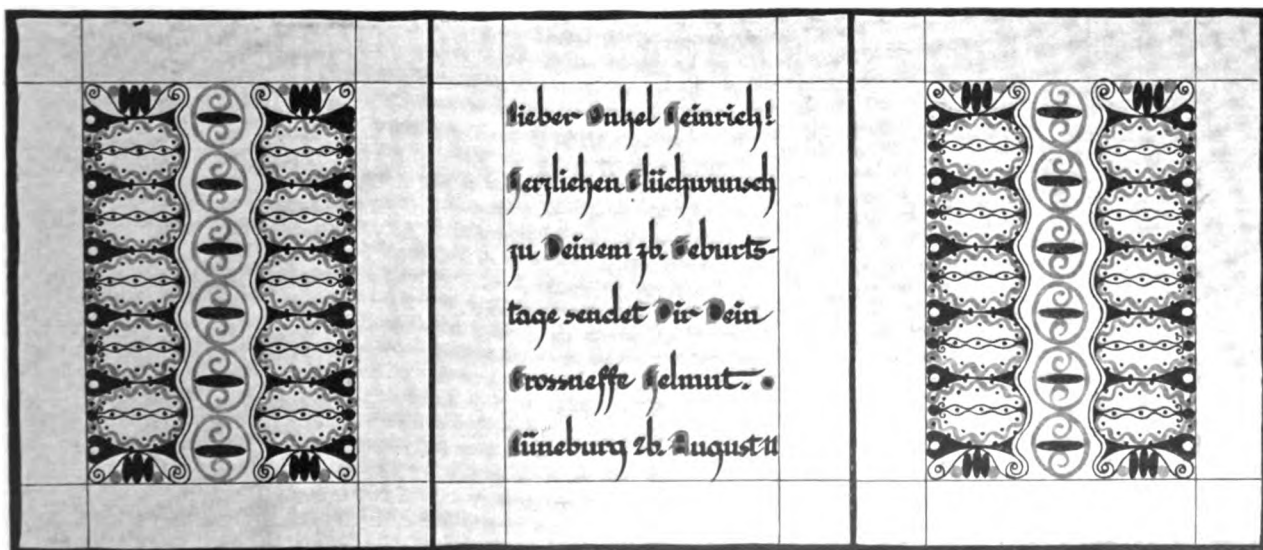 Lieber Onkel Heinrich!
Herzlichen Glückwunsch
zu Deinem 76. Geburts-
tage sendet Dir Dein
Grossneffe Helmut.
Lüneburg 26. August 11